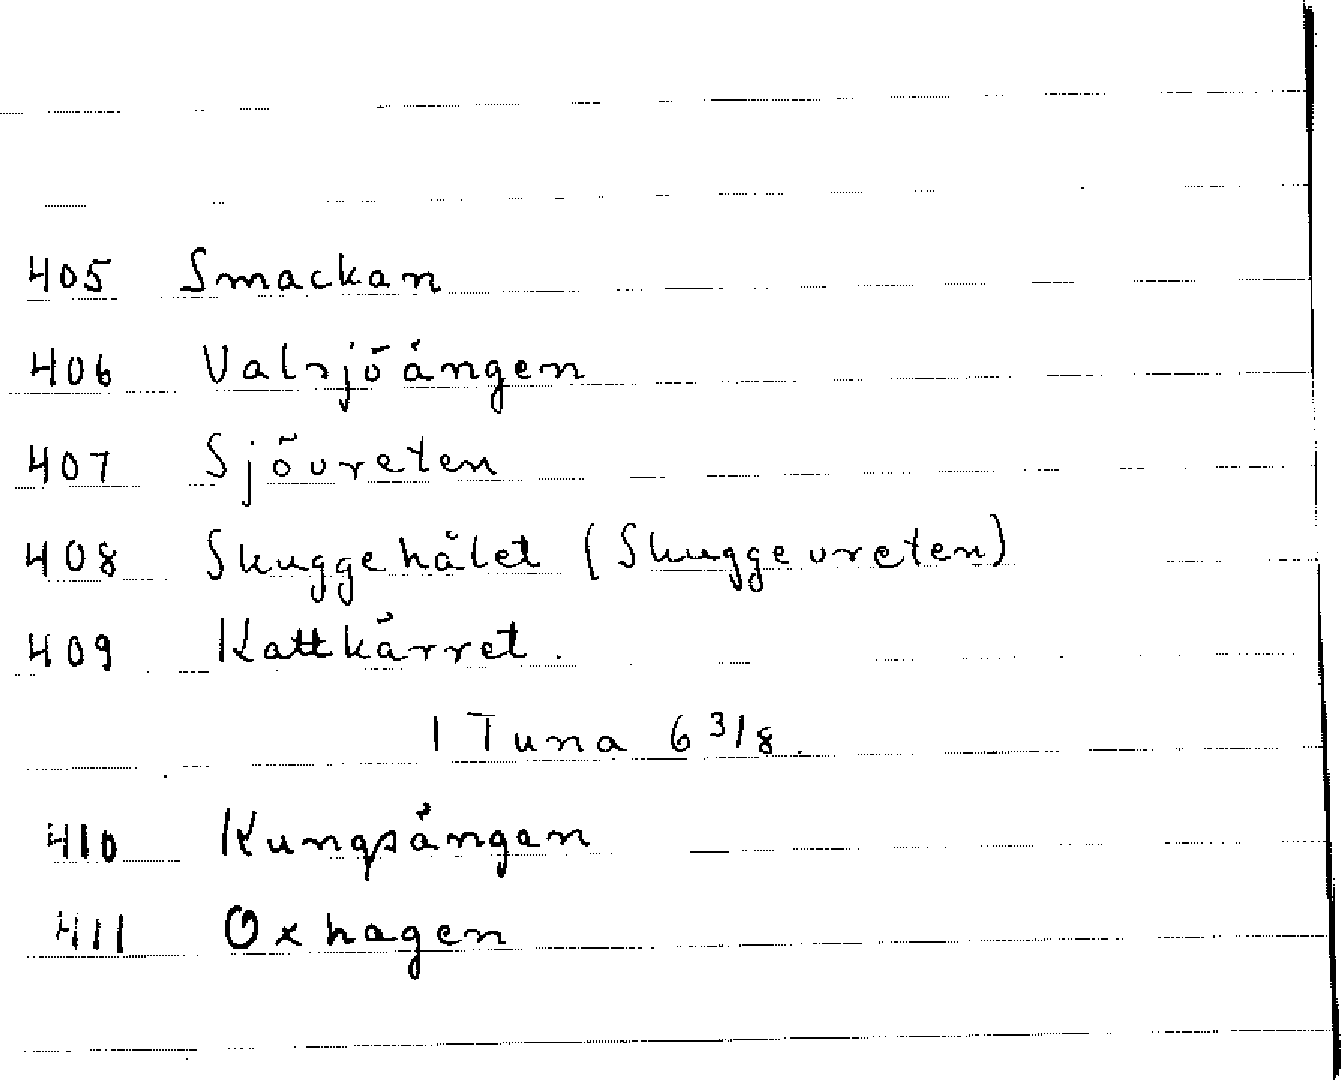 405 Smackan
406 Valsjöängen
407 Sjövreten
408 Skuggehålet (Skuggevreten)
409 Kattkärret.
I Tuna 6 3/8.
410 Kungsängen
411 Oxhagen